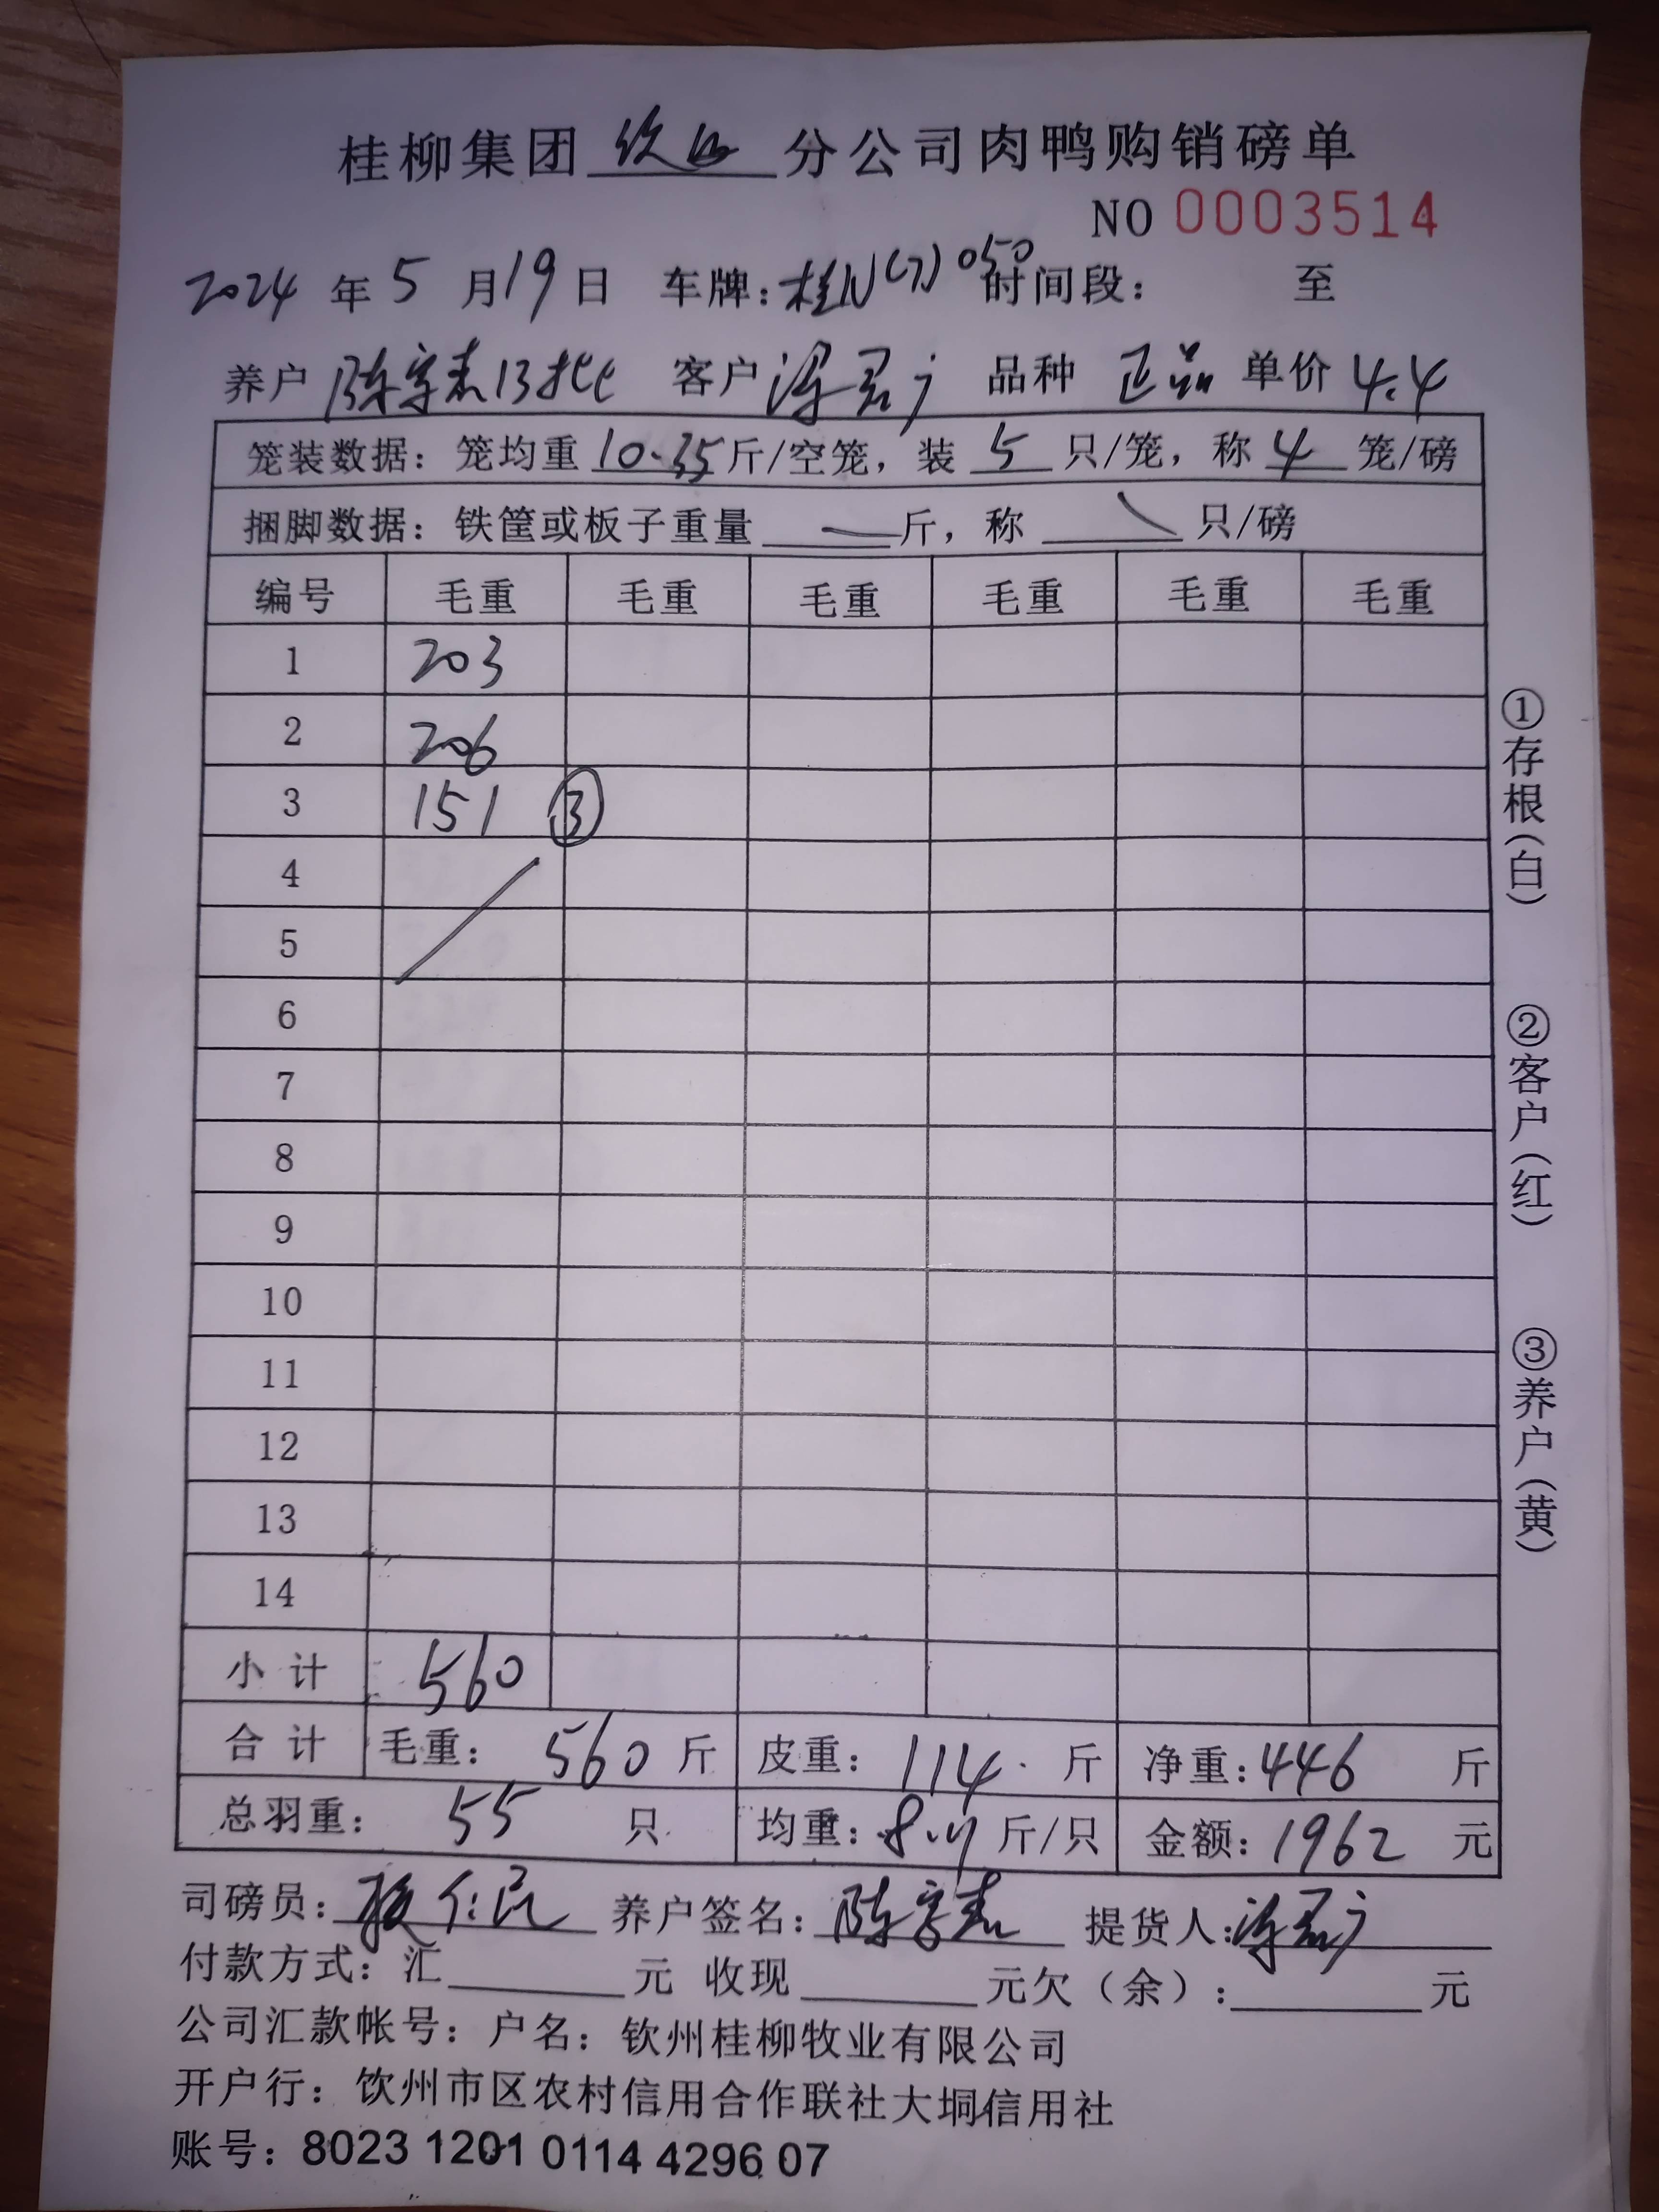 桂柳集团 钦州 分公司肉鸭购销磅单
NO 0003514
2024 年 5 月 19 日 车牌: 桂N(7)050 时间段: 至
养户 陈字杰13批 客户 品种 正品 单价 4.4
笼装数据: 笼均重 10.35 斤/空笼, 装 5 只/笼, 称 4 笼/磅
捆脚数据: 铁筐或板子重量 — 斤, 称 \ 只/磅
编号 毛重 毛重 毛重 毛重 毛重 毛重
1 203
2 206
3 151 ③
4
5
6
7
8
9
10
11
12
13
14
小计 560
合计 毛重: 560 斤 皮重: 114. 斤 净重: 446 斤
总羽重: 55 只 均重: 8.11 斤/只 金额: 1962 元
司磅员: 养户签名: 陈字杰 提货人:
付款方式: 汇 元 收现 元欠(余): 元
公司汇款帐号: 户名: 钦州桂柳牧业有限公司
开户行: 钦州市区农村信用合作联社大垌信用社
账号: 8023 1201 0114 4296 07
①存根(白)
②客户(红)
③养户(黄)